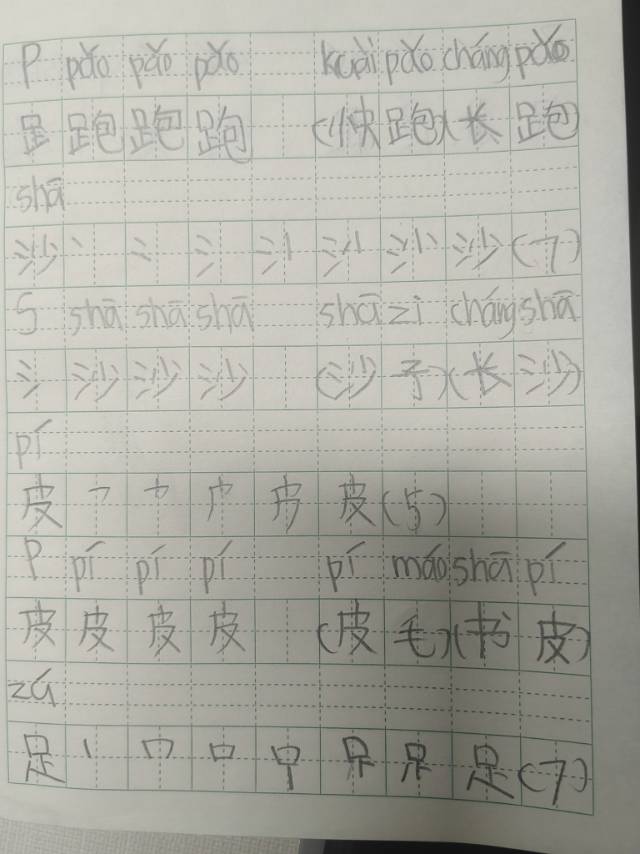 P pǎo pǎo pǎo kuài pǎo cháng pǎo
𧾷 跑 跑 跑 (快 跑)(长 跑)
shā
沙 丶 冫 氵 沙 (7)
S shā shā shā shā zi cháng shā
氵 沙 沙 沙 (沙 子)(长 沙)
pí
皮 皮 (5)
P pí pí pí pí máo shā pí
皮 皮 皮 皮 (皮 毛)(书 皮)
zú
足 丶 口 足 (7)